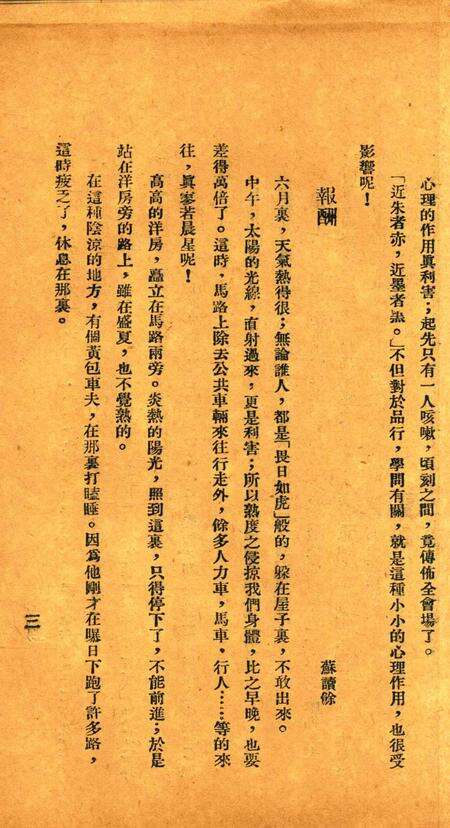 心理的作用眞利害；起先只有一人咳嗽，頃刻之間，竟傳佈全會場了。
「近朱者赤，近墨者黑。」不但對於品行，學問有關，就是這種小小的心理作用，也很受
影響呢！
報酬
蘇讀餘
六月裏，天氣熱得很；無論誰人，都是「畏日如虎」般的，躲在屋子裏，不敢出來。
中午，太陽的光線，直射過來，更是利害；所以熟度之侵掠我們身體，比之早晚，也要
差得萬倍了。這時，馬路上除去公共車輛來往行走外，餘多人力車，馬車，行人……等的來
往，眞寥若晨星呢！
高高的洋房，矗立在馬路兩旁。炎熱的陽光，照到這裏，只得停下了，不能前進；於是
站在洋房旁的路上，雖在盛夏，也不覺熟的。
在這種陰涼的地方，有個黃包車夫，在那裏打瞌睡。因爲他剛才在曬日下跑了許多路，
這時疲乏了，休息在那裏。
三